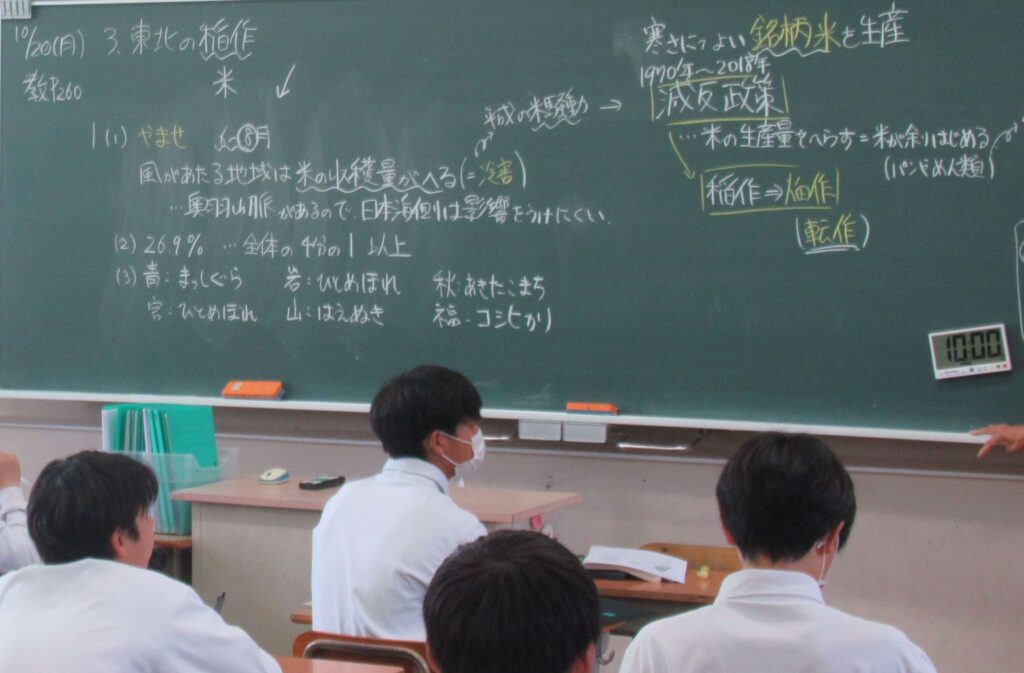 10/20(月) 3. 東北の稲作
教P.260
米
1 (1) やませ 6〜8月
風があたる地域は米の収穫量がへる(=冷害)
…奥羽山脈があるので、日本海側は影響をうけにくい.
(2) 26.9% …全体の4分の1以上
(3) 青:まっしぐら 岩:ひとめぼれ 秋:あきたこまち
宮:ひとめぼれ 山:はえぬき 福:コシヒカリ
平成の米騒動 →
寒さにつよい銘柄米を生産
1970年〜2018年
減反政策
…米の生産量をへらす=米が余りはじめる
(パンやめん類)
稲作⇒畑作
(転作)
10:00